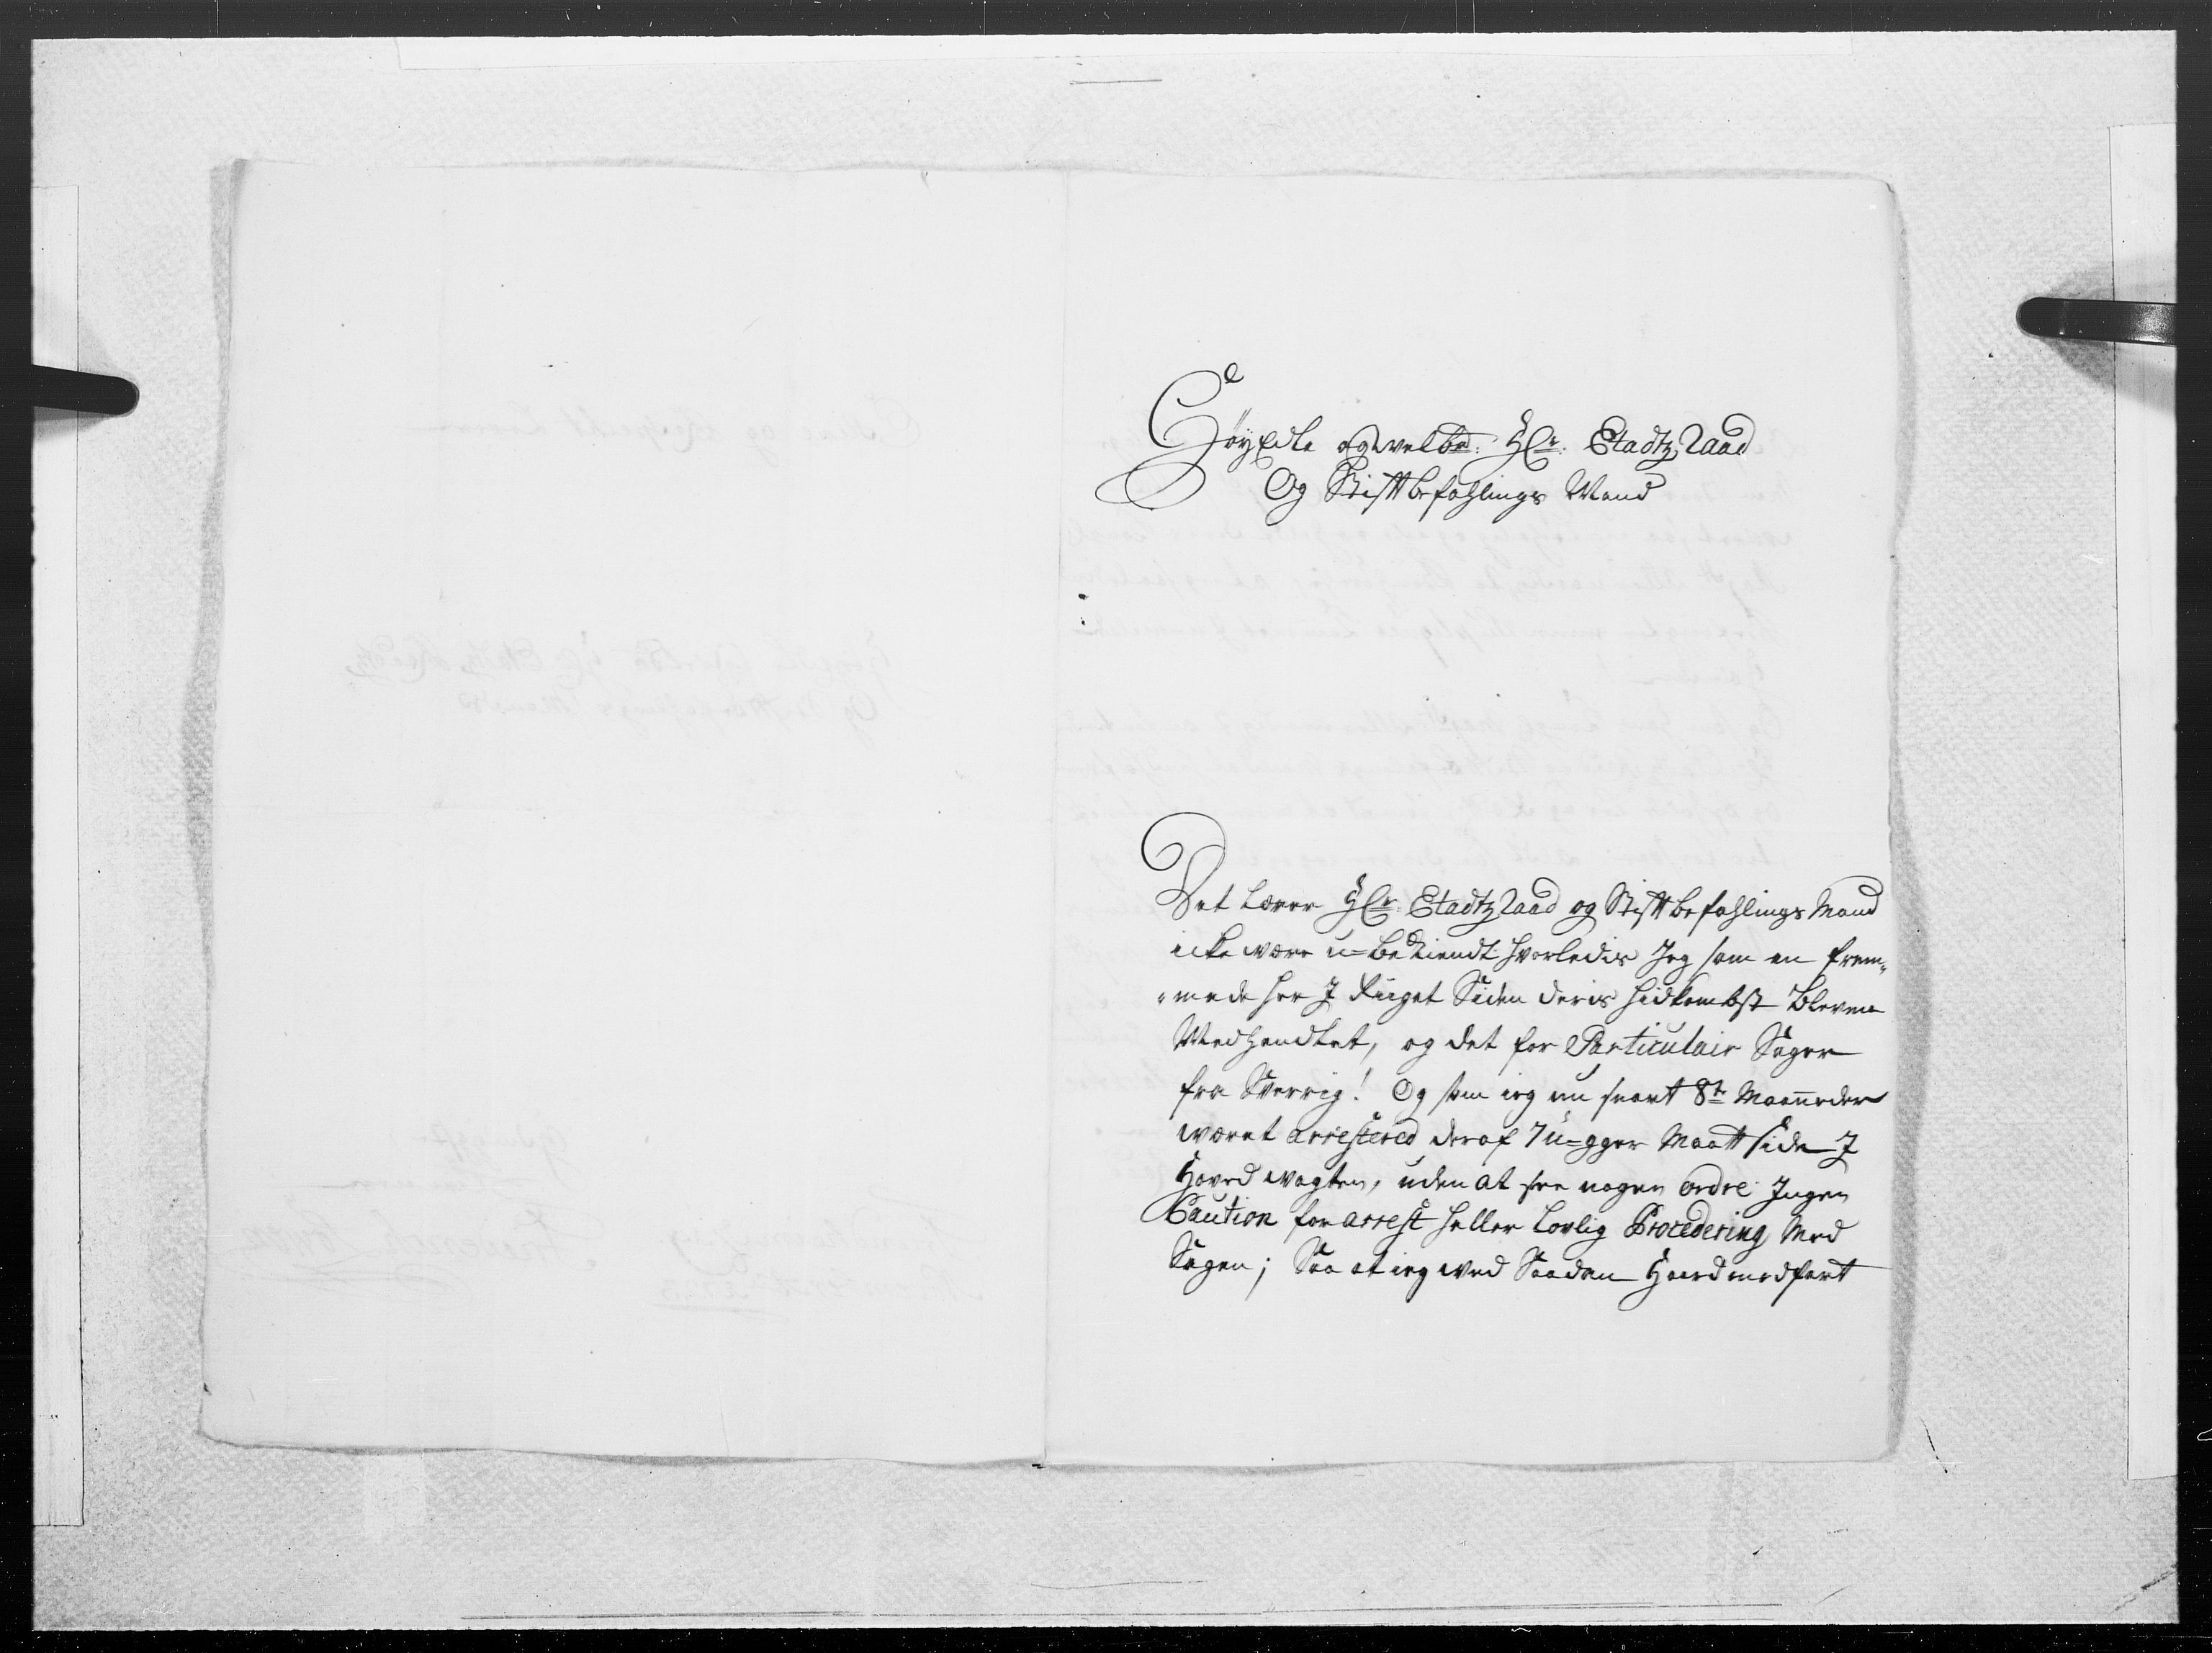 Høyædle og velbr: HEr: Etadtz Raad
Og Stiftbefahlings Mand
Det Lærer HEr: Etadtz Raad og Stiftbefahlings Mand
icke være u=bekiendt hvorledis Jeg som en frem-
-mede her I Riiget Siden deris hidkombst bleven
Medhandlet, og det for Particulair Sager
fra Sverrig! Og som ieg nu snart 8te Maaneder
været arresteret deraf 7 u=gger Maatt side I
Hoved vagten, uden at see nogen ordre Ingen
Caution for arrest heller Lovlig Procedering Med
Sagen; Saa at ieg ved Saadan Haard medfart